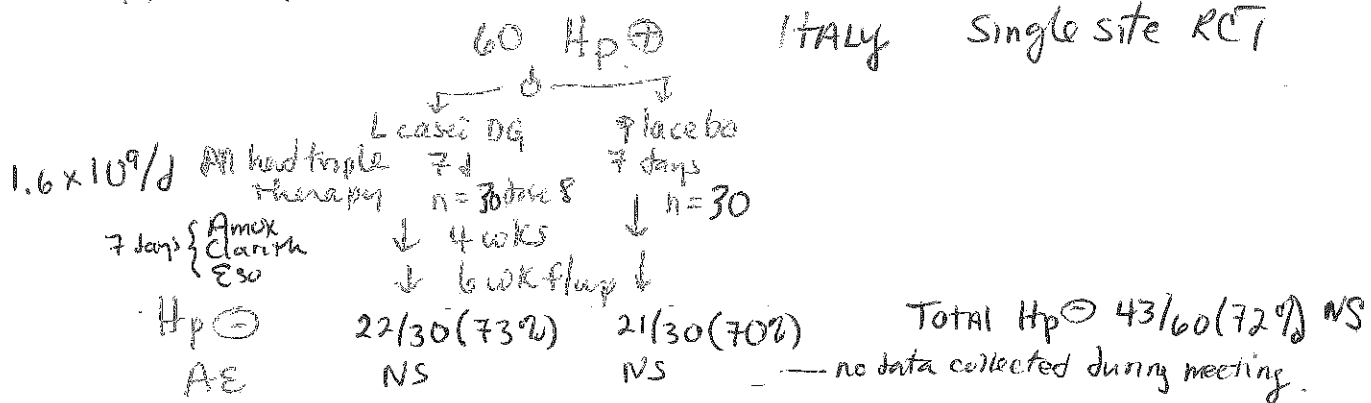 60 Hp ⊕ ITALY Single site RCT
L casei DG Placebo
1.6 x 10⁹/d All had triple 7 d 7 days
therapy n = 30 n = 30
7 days { Amox
Clarith ↓ 4 wks ↓
Eso ↓ 6 wk f/up ↓
Hp ⊖ 22/30 (73%) 21/30 (70%) TOTAL Hp ⊖ 43/60 (72%) NS
AE NS NS — no data collected during meeting.